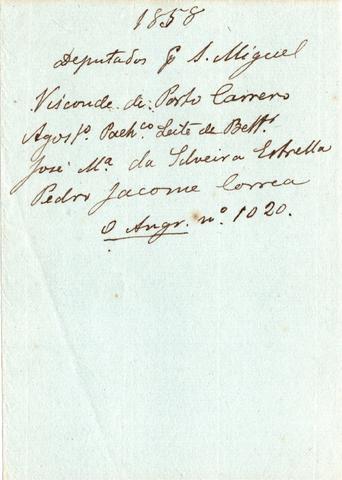 1858
Deputados p S. Miguel
Visconde de Porto Carrero
Agost.º Pach.co Leite de Bett.t
José M.ª da Silveira Estrella
Pedro Jacome Correa
O Angr. nº. 1020.